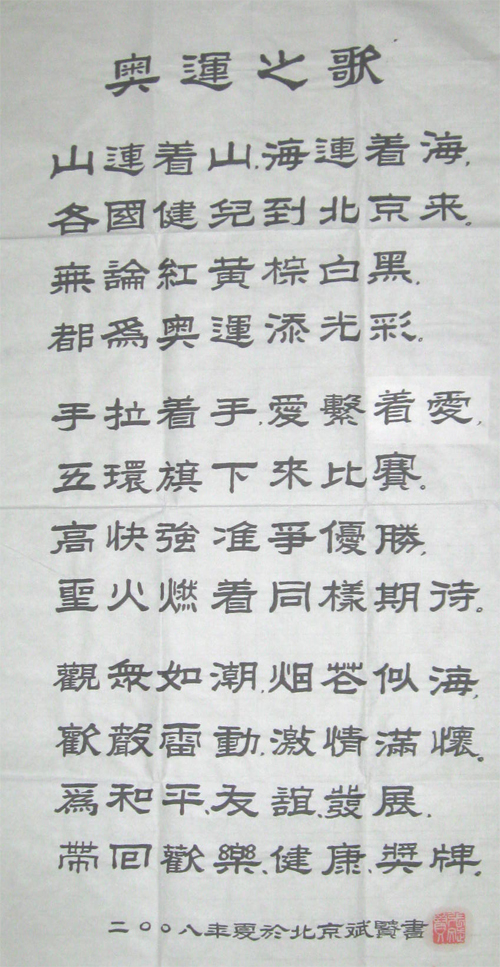 奥運之歌
山連着山,海連着海,
各國健兒到北京来。
無論紅黄棕白黑,
都為奥運添光彩。
手拉着手,愛繫着愛,
五環旗下來比賽。
高快強准爭優勝,
聖火燃着同樣期待。
觀衆如潮,烟花似海,
歡聲雷動,激情滿懷。
為和平、友誼、發展,
帶回歡樂、健康、奬牌。
二〇〇八年夏於北京斌賢書